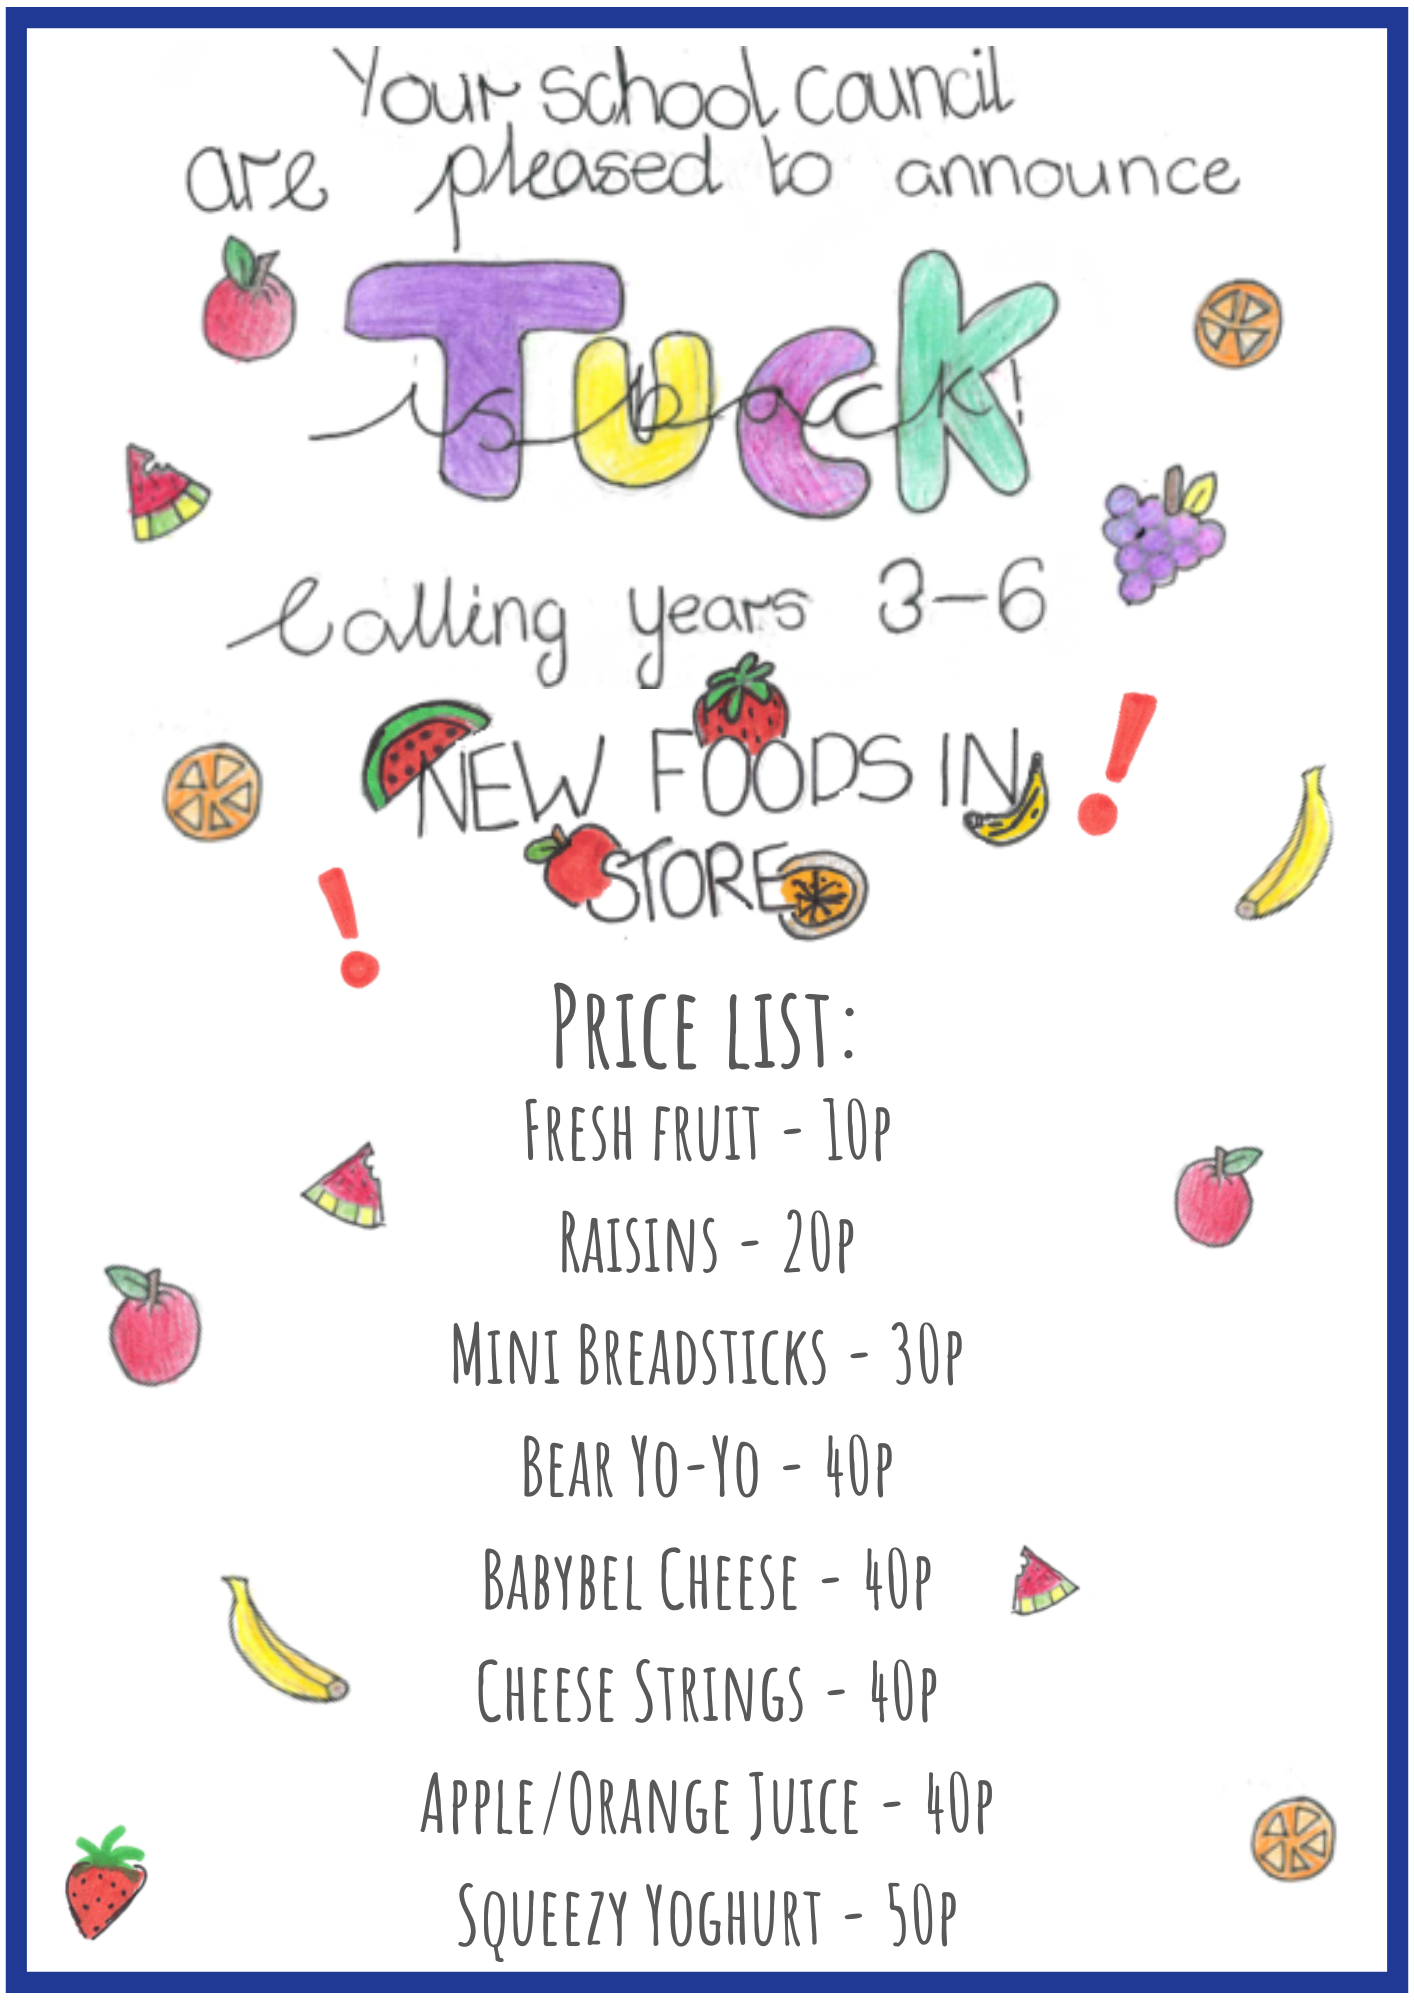 Your school council
are pleased to announce
TUCK
is back!
Calling years 3-6
NEW FOODS IN
STORE
PRICE LIST:
FRESH FRUIT - 10P
RAISINS - 20P
MINI BREADSTICKS - 30P
BEAR YO-YO - 40P
BABYBEL CHEESE - 40P
CHEESE STRINGS - 40P
APPLE/ORANGE JUICE - 40P
SQUEEZY YOGHURT - 50P